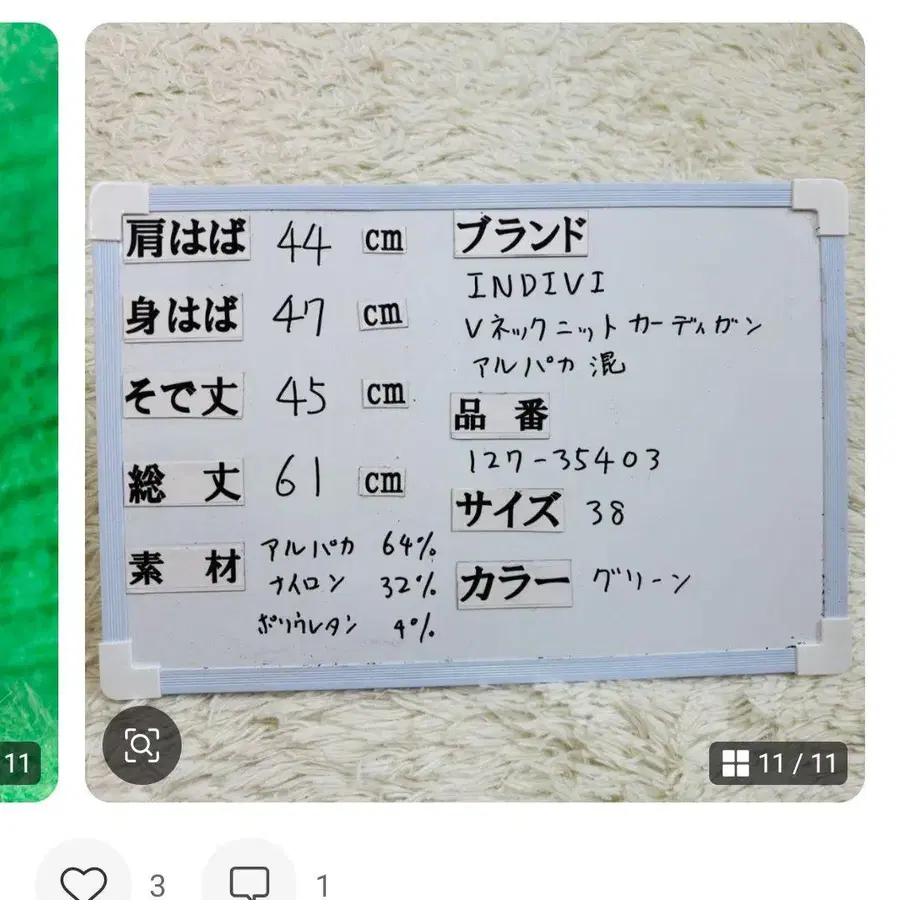 肩はば 44 cm
身はば 47 cm
そで丈 45 cm
総丈 61 cm
素材 アルパカ 64%
ナイロン 32%
ポリウレタン 4%
ブランド
INDIVI
Vネックニットカーディガン
アルパカ混
品番
127-35403
サイズ 38
カラー グリーン
11
11 / 11
3
1